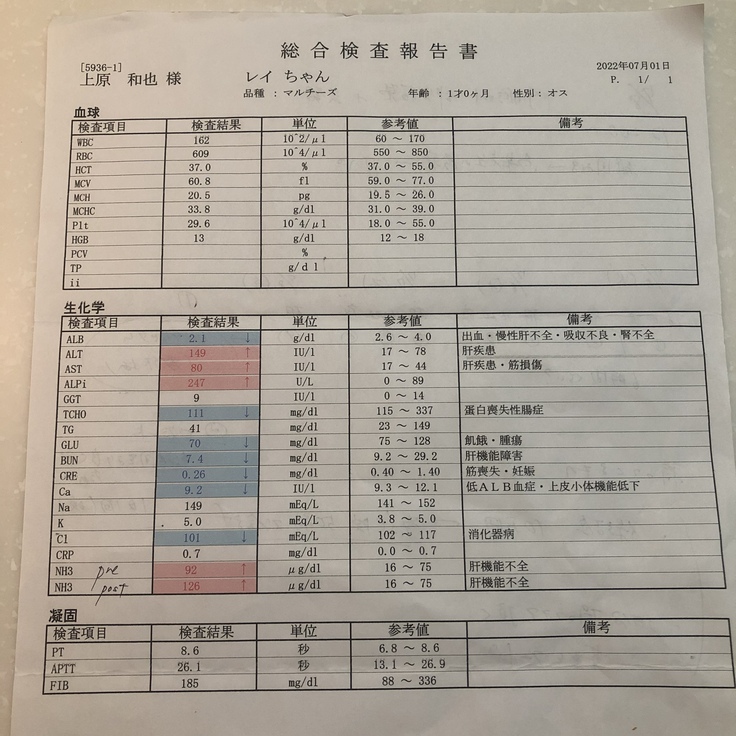 総合検査報告書
[5936-1]
2022年07月01日
上原 和也 様 レイ ちゃん P. 1/ 1
品種 : マルチーズ 年齢 : 1才0ヶ月 性別: オス
血球
検査項目 検査結果 単位 参考値 備考
WBC 162 10^2/μl 60 ～ 170
RBC 609 10^4/μl 550 ～ 850
HCT 37.0 % 37.0 ～ 55.0
MCV 60.8 fl 59.0 ～ 77.0
MCH 20.5 pg 19.5 ～ 26.0
MCHC 33.8 g/dl 31.0 ～ 39.0
Plt 29.6 10^4/μl 18.0 ～ 55.0
HGB 13 g/dl 12 ～ 18
PCV %
TP g/dl
ii
生化学
検査項目 検査結果 単位 参考値 備考
ALB 2.1 ↓ g/dl 2.6 ～ 4.0 出血・慢性肝不全・吸収不良・腎不全
ALT 149 ↑ IU/l 17 ～ 78 肝疾患
AST 80 ↑ IU/l 17 ～ 44 肝疾患・筋損傷
ALPi 247 ↑ U/L 0 ～ 89
GGT 9 IU/l 0 ～ 14
TCHO 111 ↓ mg/dl 115 ～ 337 蛋白喪失性腸症
TG 41 mg/dl 23 ～ 149
GLU 70 ↓ mg/dl 75 ～ 128 飢餓・腫瘍
BUN 7.4 ↓ mg/dl 9.2 ～ 29.2 肝機能障害
CRE 0.26 ↓ mg/dl 0.40 ～ 1.40 筋喪失・妊娠
Ca 9.2 ↓ IU/l 9.3 ～ 12.1 低ALB血症・上皮小体機能低下
Na 149 mEq/L 141 ～ 152
K 5.0 mEq/L 3.8 ～ 5.0
Cl 101 ↓ mEq/L 102 ～ 117 消化器病
CRP 0.7 mg/dl 0.0 ～ 0.7
NH3 pre 92 ↑ μg/dl 16 ～ 75 肝機能不全
NH3 post 126 ↑ μg/dl 16 ～ 75 肝機能不全
凝固
検査項目 検査結果 単位 参考値 備考
PT 8.6 秒 6.8 ～ 8.6
APTT 26.1 秒 13.1 ～ 26.9
FIB 185 mg/dl 88 ～ 336